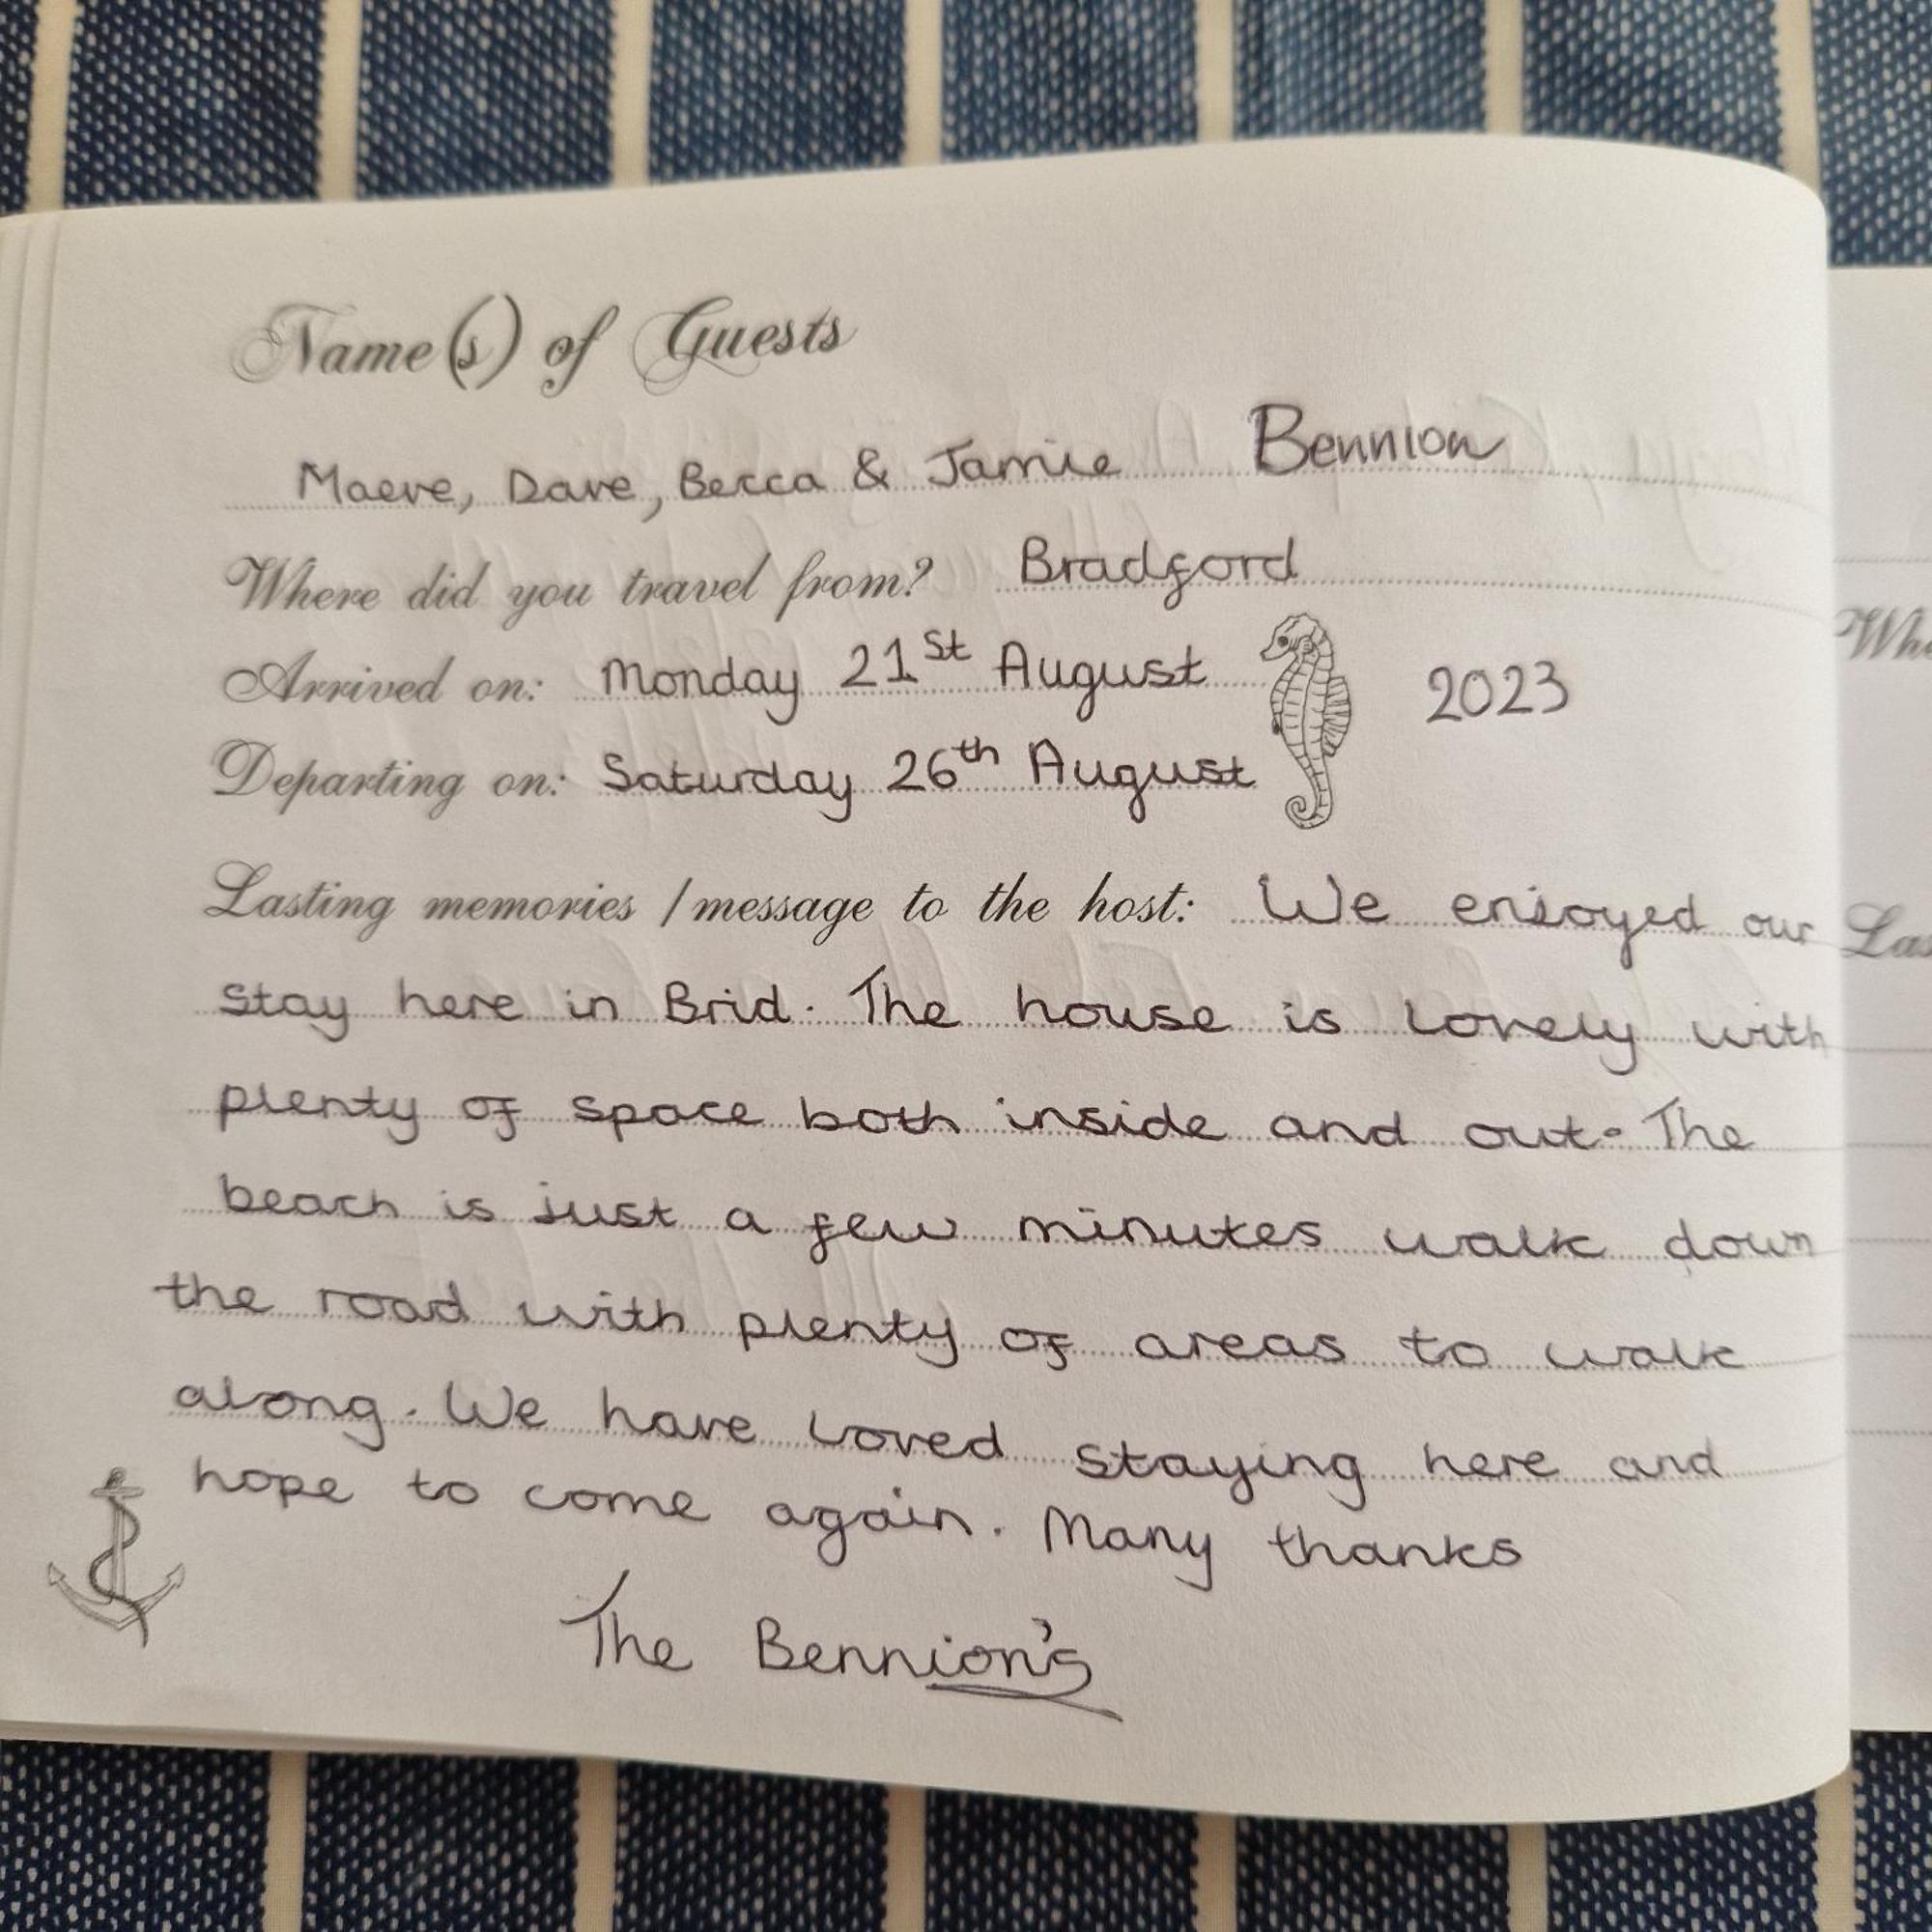 Name(s) of Guests
Maeve, Dave, Becca & Jamie Bennion
Where did you travel from? Bradford
Arrived on: Monday 21st August 2023
Departing on: Saturday 26th August
Lasting memories / message to the host: We enjoyed our
stay here in Brid. The house is lovely with
plenty of space both inside and out. The
beach is just a few minutes walk down
the road with plenty of areas to walk
along. We have loved staying here and
hope to come again. Many thanks
The Bennion's